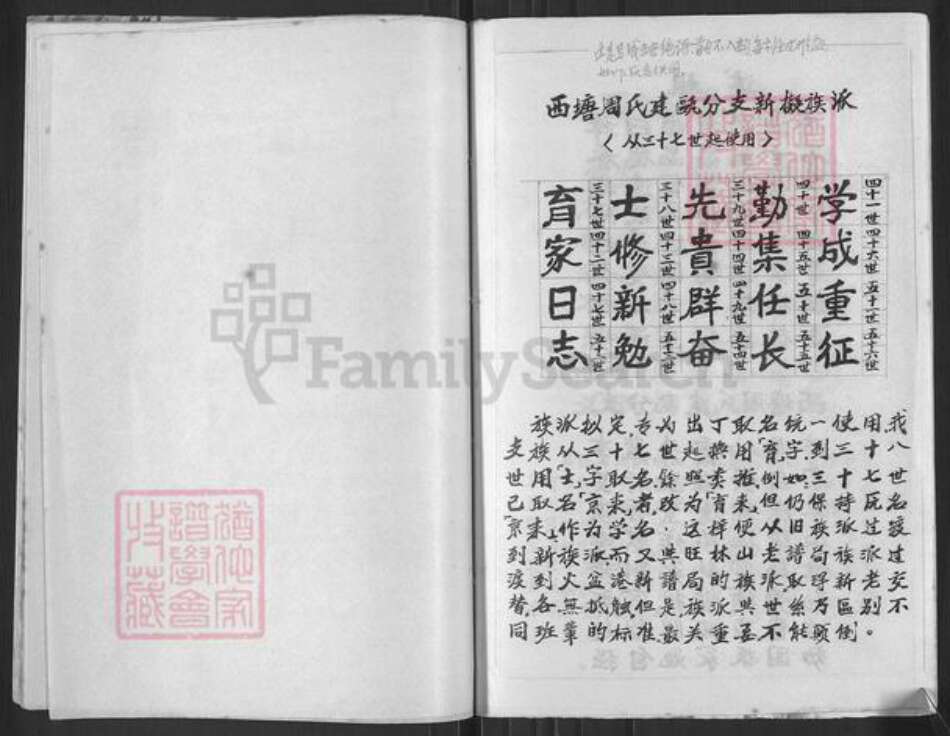 西塘周氏建甌分支新擬族派
〈从三十七世起使用〉
育 三十七世 士 三十八世 先 三十九世 勤 四十世 学 四十一世
家 四十二世 修 四十三世 貴 四十四世 集 四十五世 成 四十六世
日 四十七世 新 四十八世 群 四十九世 任 五十世 重 五十一世
志 五十二世 勉 五十三世 奋 五十四世 长 五十五世 征 五十六世
族派拟定,专为出丁取名统一使用我
支族从三十七世起照用「育」字,到三十八
世用「士」字取名,馀照类推,例如:三十七世
已取名「京来」者,改为「育来」,但仍保持原名
「京来」作为学名.这样便从旧族派过渡
到新族派,而又與旺林山老譜局族派过
渡到火盆港新譜局的族派取得新老交
替,各無抵触,但是族派與世系乃區别不
同班輩的标准,最关重要不能颠倒。
猶他家
譜學會
收藏
FamilySearch